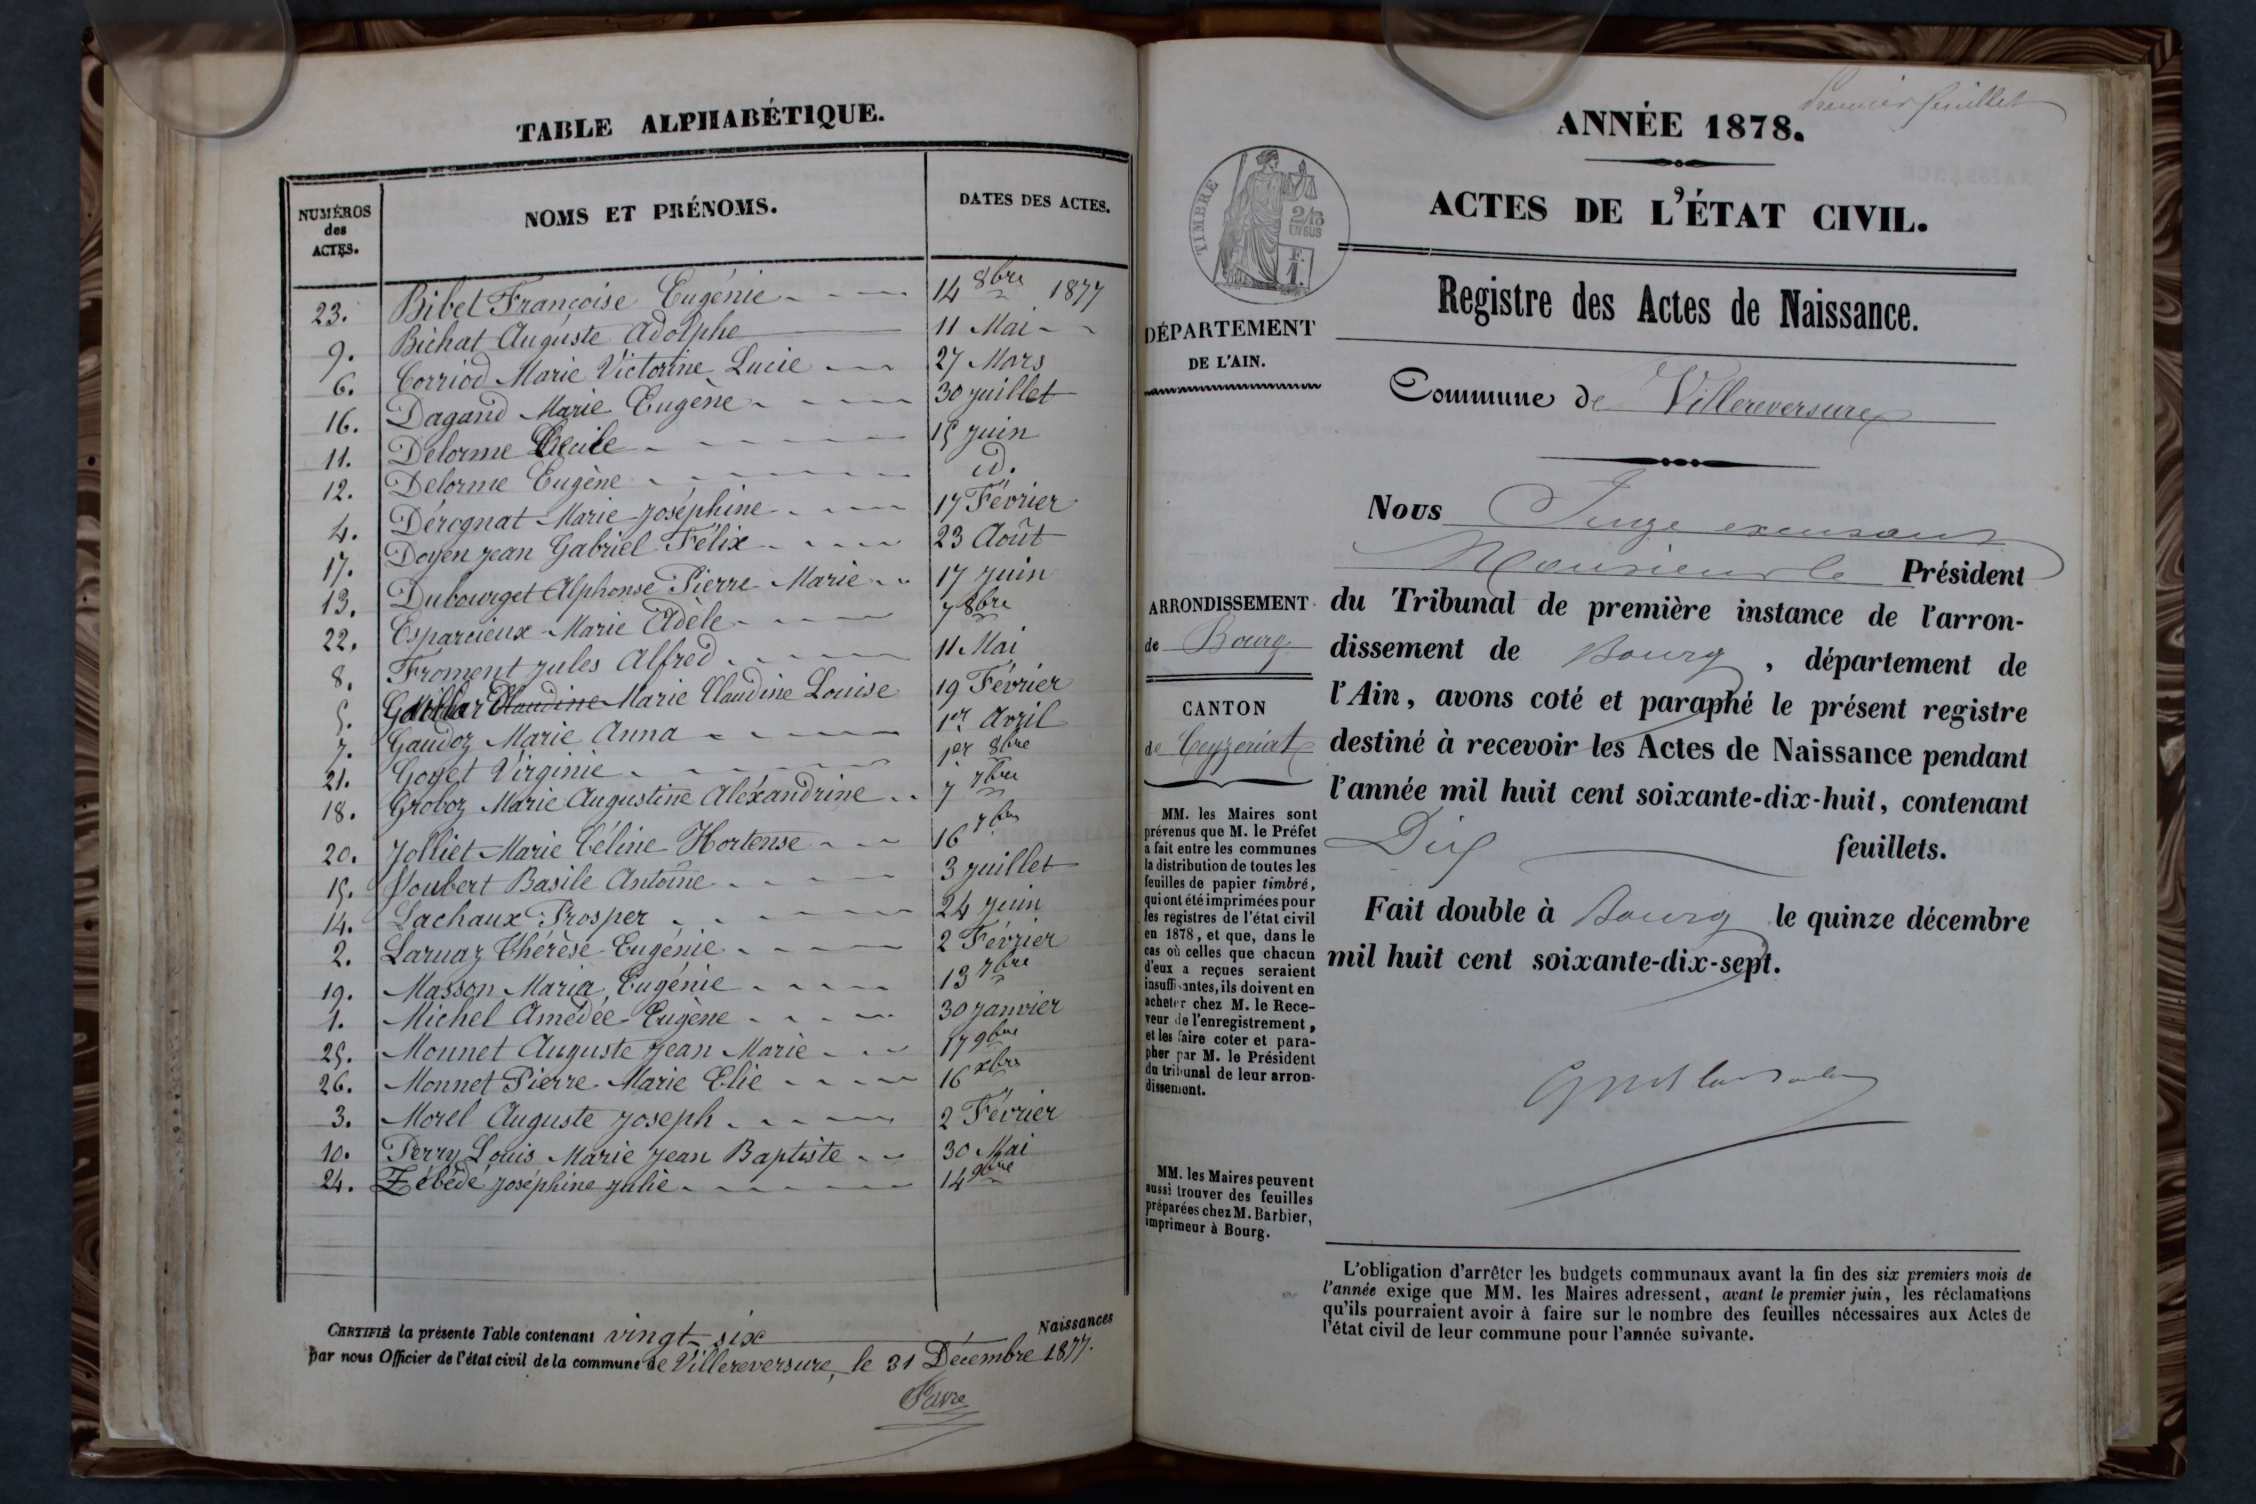 TABLE ALPHABÉTIQUE.
NUMÉROS des ACTES. NOMS ET PRÉNOMS. DATES DES ACTES.
23. Bibet Françoise Eugénie 14 8bre 1877
9. Bichat Auguste Adolphe 11 Mai
6. Corriod Marie Victorine Lucie 27 Mars
16. Dagand Marie Eugène 30 juillet
11. Delorme 15 juin
12. Delorme Eugène id.
4. Dérognat Marie Joséphine 17 Février
17. Doyen Jean Gabriel Félix 23 Août
13. Dubourget Alphonse Pierre Marie 17 juin
22. Esparcieux Marie Adèle 7 8bre
8. Froment Jules Alfred 11 Mai
5. Claudine Marie Claudine Louise 19 Février
7. Gaudoz Marie Anna 1er Avril
21. Goyet Virginie 1er 8bre
18. Groboz Marie Augustine Aléxandrine 7 7bre
20. Jolliet Marie Céline Hortense 16 7bre
15. Joubert Basile Antoine 3 juillet
14. Lachaux Prosper 24 juin
2. Laruaz Thérèse Eugénie 2 Février
19. Masson Maria Eugénie 13 7bre
1. Michel Amédée Eugène 30 Janvier
25. Monnet Auguste Jean Marie 17 9bre
26. Monnet Pierre Marie Elie 16 xbre
3. Morel Auguste Joseph 2 Février
10. Perry Louis Marie Jean Baptiste 30 Mai
24. Zébédé Joséphine Julie 14 9bre
CERTIFIÉ la présente Table contenant vingt-six Naissances
par nous Officier de l'état civil de la commune de Villereversure, le 31 Décembre 1877.
Favre
Premier feuillet
ANNÉE 1878.
ACTES DE L'ÉTAT CIVIL.
TIMBRE
2/10
EN SUS
F.
1.
Registre des Actes de Naissance.
DÉPARTEMENT
DE L'AIN.
Commune de Villereversure
ARRONDISSEMENT
de Bourg
CANTON
de Ceyzeriat
MM. les Maires sont
prévenus que M. le Préfet
a fait entre les communes
la distribution de toutes les
feuilles de papier timbré,
qui ont été imprimées pour
les registres de l'état civil
en 1878, et que, dans le
cas où celles que chacun
d'eux a reçues seraient
insuffisantes, ils doivent en
acheter chez M. le Rece-
veur de l'enregistrement,
et les faire coter et para-
pher par M. le Président
du tribunal de leur arron-
dissement.
MM. les Maires peuvent
aussi trouver des feuilles
préparées chez M. Barbier,
imprimeur à Bourg.
Nous Juge excusant
Monsieur le Président
du Tribunal de première instance de l'arron-
dissement de Bourg, département de
l'Ain, avons coté et paraphé le présent registre
destiné à recevoir les Actes de Naissance pendant
l'année mil huit cent soixante-dix-huit, contenant
Dix feuillets.
Fait double à Bourg le quinze décembre
mil huit cent soixante-dix-sept.
L'obligation d'arrêter les budgets communaux avant la fin des six premiers mois de
l'année exige que MM. les Maires adressent, avant le premier juin, les réclamations
qu'ils pourraient avoir à faire sur le nombre des feuilles nécessaires aux Actes de
l'état civil de leur commune pour l'année suivante.